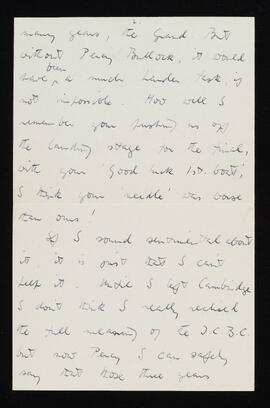 many years, the Grand But
without Percy Bullock, it would
have, been a much harder task, if
not impossible. How well I
remember your pushing us off
the landing stage for the final,
with your 'Good luck 1st. boat';
I think your 'needle' was worse
than ours!
If I sound sentimental about
it, it is just that I can't
help it. Until I left Cambridge
I don't think I really realised
the full meaning of the J.C.B.C.
but now Percy I can safely
say that those three years